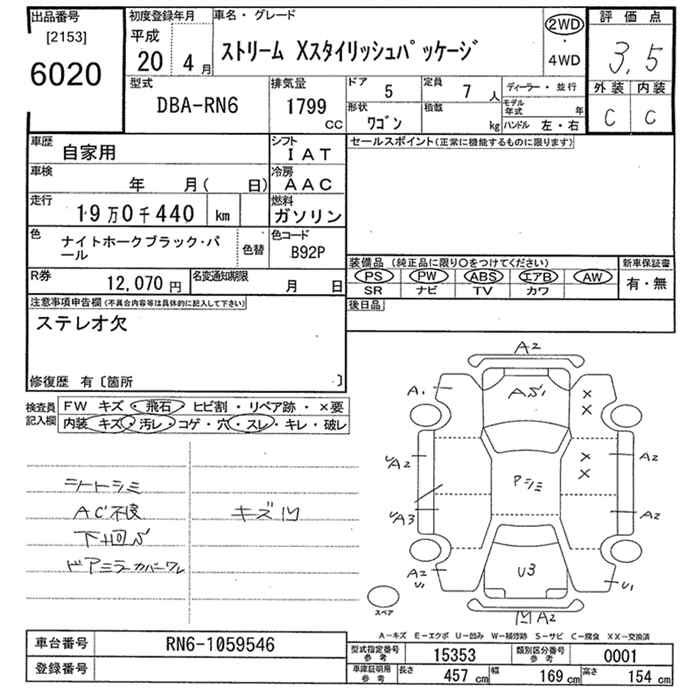 出品番号
[2153]
6020
初度登録年月
平成
20 4 月
車名・グレード
ストリーム Xスタイリッシュパッケージ
2WD
・
4WD
評価点
3,5
外装 内装
C C
型式
DBA-RN6
排気量
1799
CC
ドア
5
定員
7 人
形状
ワゴン
積載
kg
ディーラー・並行
モデル年式 年
ハンドル 左・右
車歴
自家用
シフト
IAT
車検
年 月( 日)
冷房
AAC
走行
19万0千440 km
燃料
ガソリン
色
ナイトホークブラック・パール
色替
色コード
B92P
R券
12,070 円
名変通知期限
月 日
セールスポイント(正常に機能するものに限ります)
装備品 (純正品に限り○をつけてください)
新車保証書
PS PW ABS エアB AW
SR ナビ TV カワ
有・無
後日品
注意事項申告欄 (不具合内容等は具体的に記入して下さい)
ステレオ欠
修復歴 有〔箇所 〕
検査員記入欄
FW キズ・飛石・ヒビ割・リペア跡・×要
内装 キズ・汚レ・コゲ・穴・スレ・キレ・破レ
シートシミ
AC不良
下回S
ドアミラーカバーワレ
キズ凹
A2
A1
AS1
×
×
×
×
UA2
A2
Pシミ
UA3
A2
A2
U1
U3
U1
凹A2
スペア
A-キズ E-エクボ U-凹み W-補修跡 S-サビ C-腐食 XX-交換済
車台番号
RN6-1059546
登録番号
型式指定番号 参考
15353
類別区分番号 参考
0001
車庫証明用 参考
長さ 457 cm
幅 169 cm
高さ 154 cm